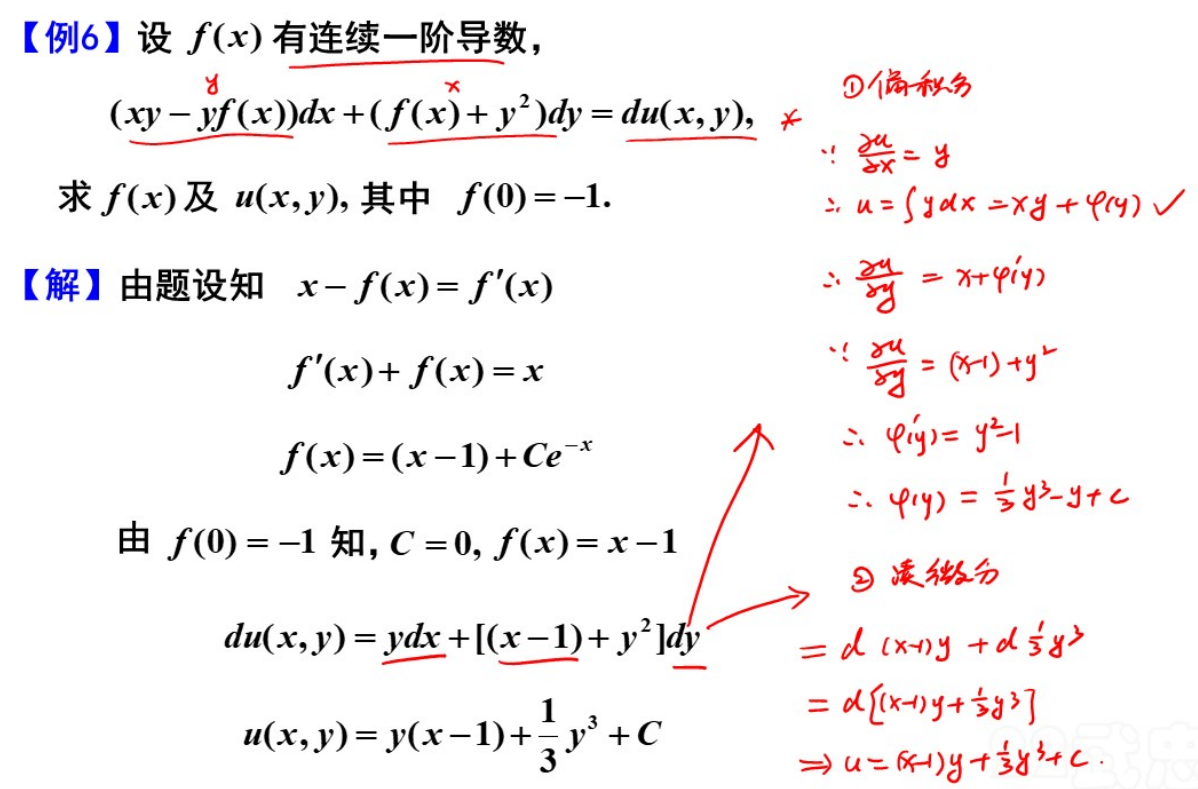 【例6】设 f(x) 有连续一阶导数,
y x
(xy − yf(x))dx + (f(x) + y²)dy = du(x, y), *
求 f(x) 及 u(x, y), 其中 f(0) = −1.
【解】由题设知 x − f(x) = f′(x)
f′(x) + f(x) = x
f(x) = (x − 1) + Ce⁻ˣ
由 f(0) = −1 知, C = 0, f(x) = x − 1
du(x, y) = ydx + [(x − 1) + y²]dy
u(x, y) = y(x − 1) + 1/3 y³ + C
①偏积分
∵ ∂u/∂x = y
∴ u = ∫ydx = xy + φ(y) ✓
∴ ∂u/∂y = x + φ′(y)
∵ ∂u/∂y = (x-1) + y²
∴ φ′(y) = y²-1
∴ φ(y) = 1/3 y³ - y + c
② 凑微分
= d (x-1)y + d 1/3 y³
= d[(x-1)y + 1/3 y³]
⇒ u = (x-1)y + 1/3 y³ + c.